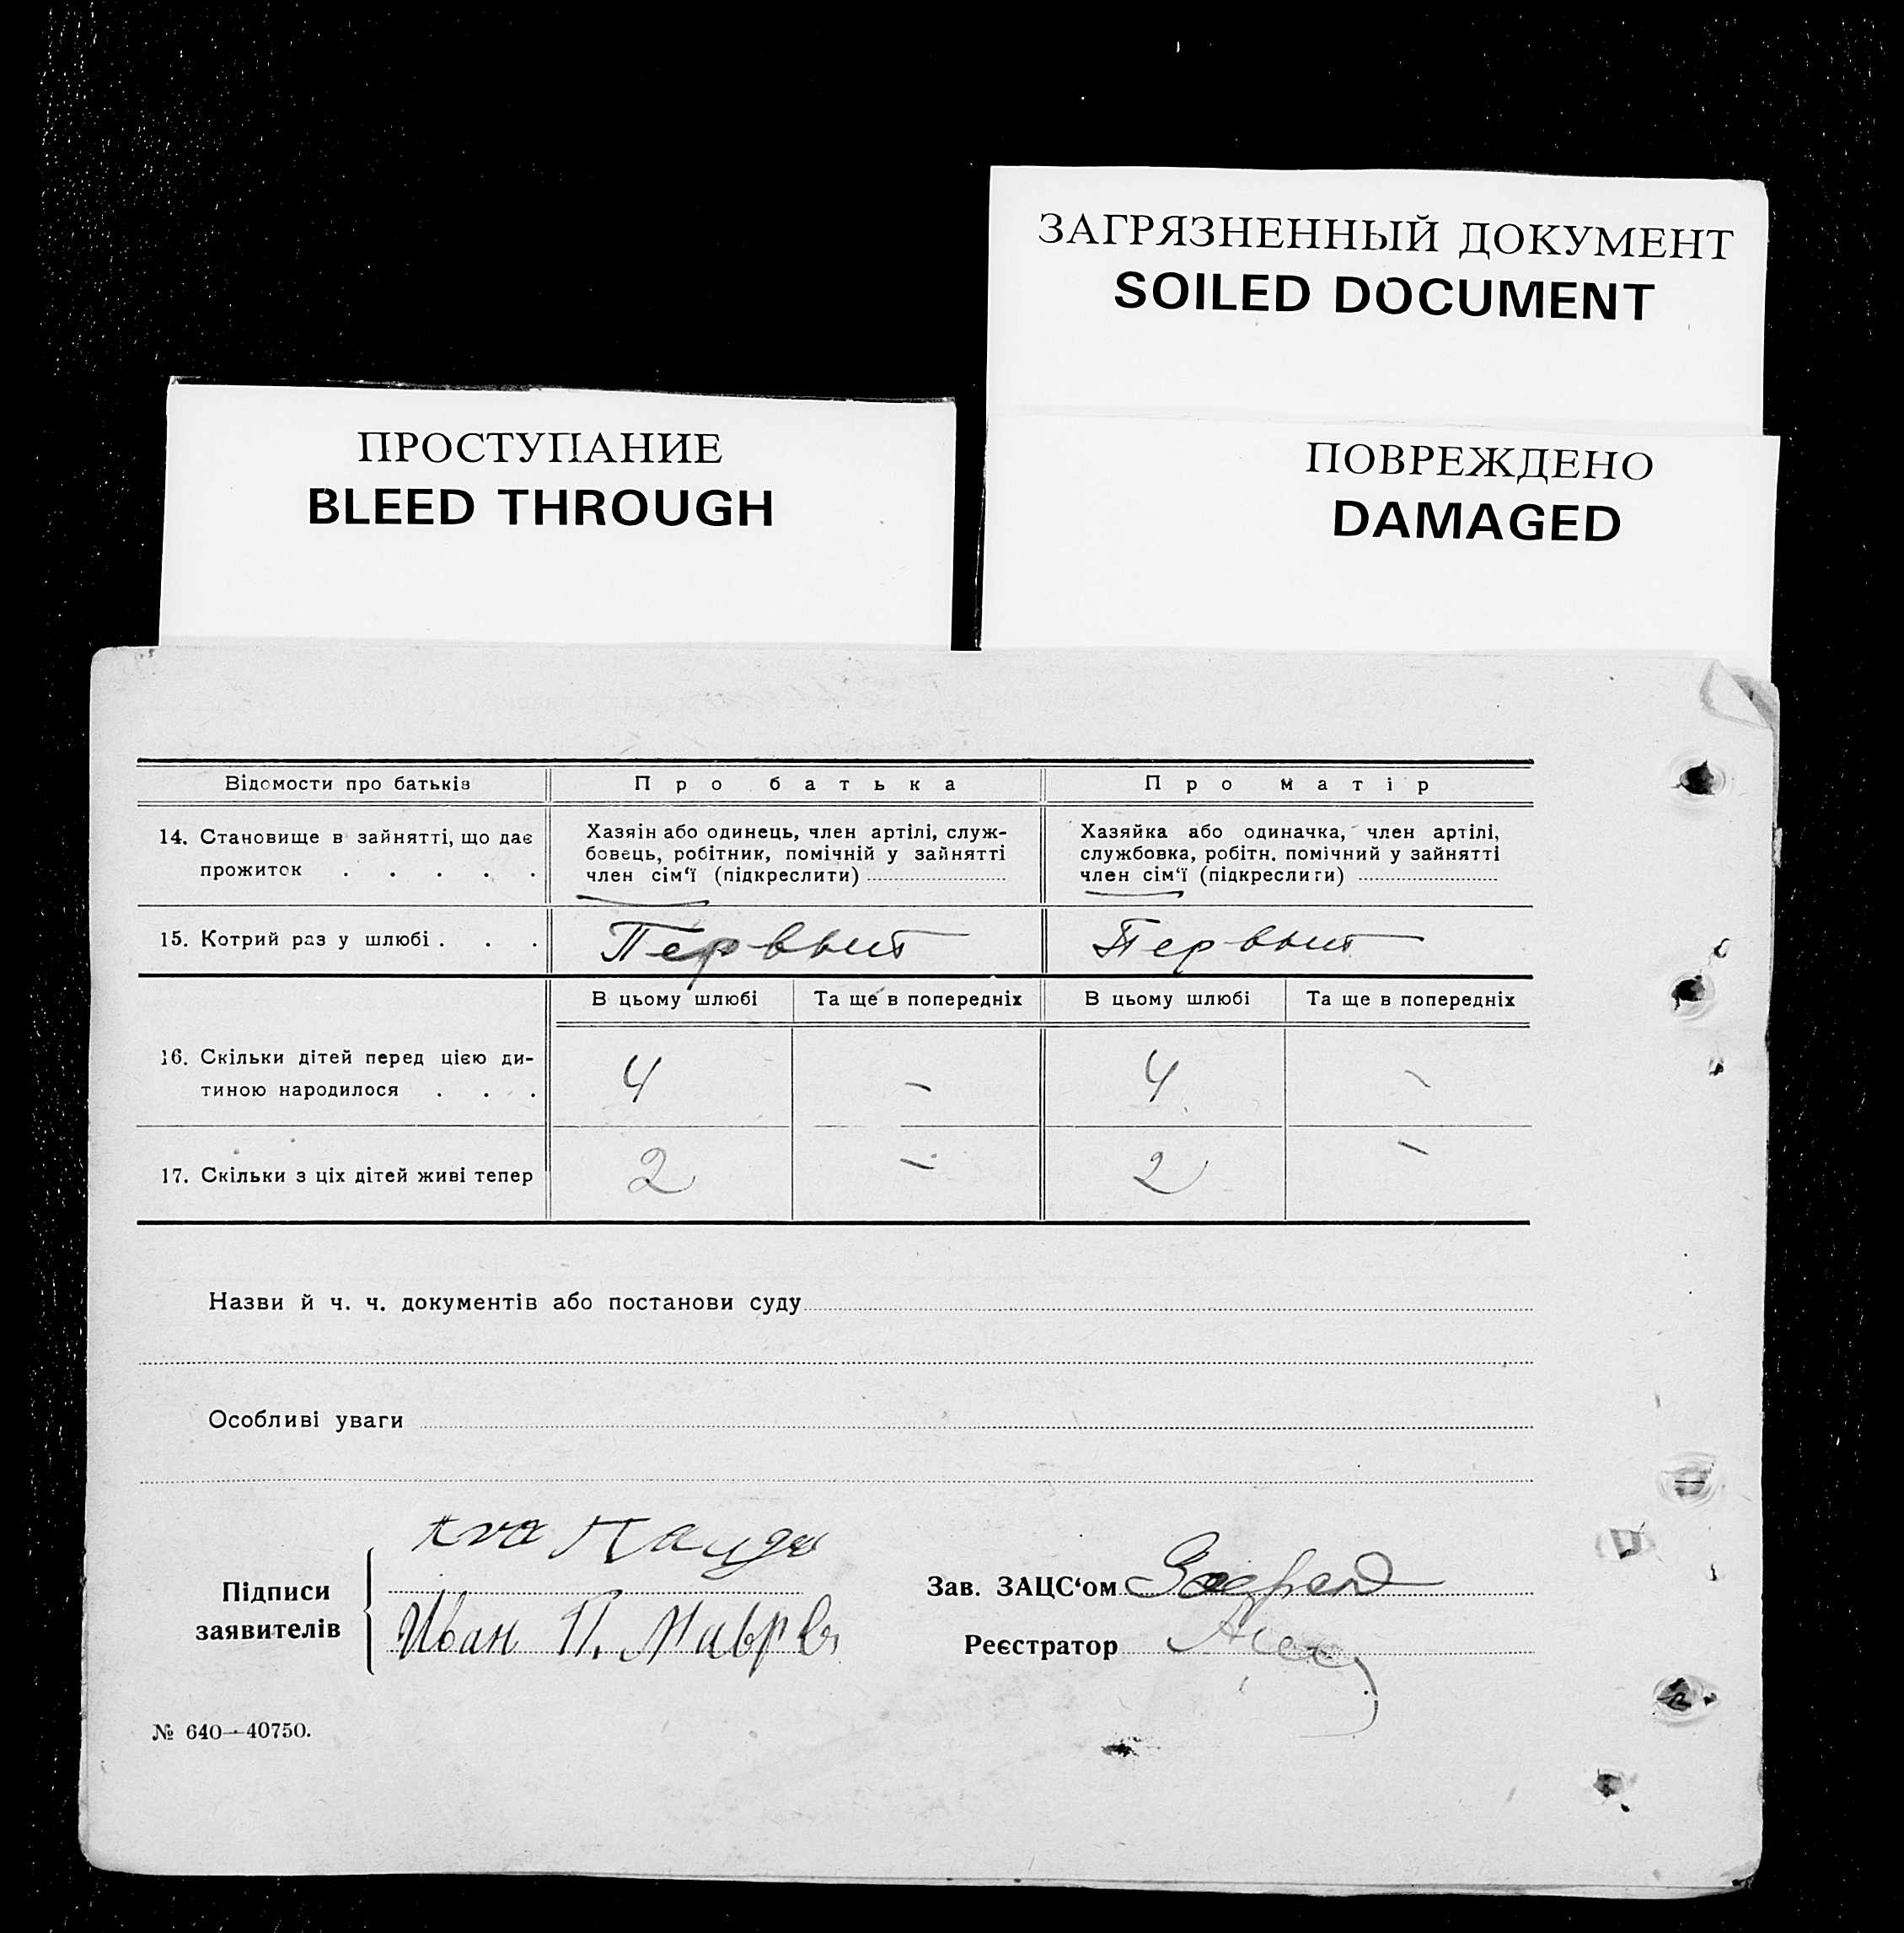 ЗАГРЯЗНЕННЫЙ ДОКУМЕНТ
SOILED DOCUMENT
ПРОСТУПАНИЕ
BLEED THROUGH
ПОВРЕЖДЕНО
DAMAGED
Відомости про батьків
Про батька
Про матір
14. Становище в зайнятті, що дає
прожиток . . . . .
Хазяїн або одинець, член артілі, служ-
бовець, робітник, помічній у зайнятті
член сім‘ї (підкреслити)
Хазяйка або одиначка, член артілі,
службовка, робітн. помічний у зайнятті
член сім‘ї (підкреслити)
15. Котрий раз у шлюбі . . .
Первый
Первый
В цьому шлюбі
Та ще в попередніх
В цьому шлюбі
Та ще в попередніх
16. Скільки дітей перед цією ди-
тиною народилося . . .
4 – 4 –
17. Скільки з ціх дітей живі тепер
2 – 2 –
Назви й ч. ч. документів або постанови суду
Особливі уваги
Підписи
заявителів
Иван П.
Зав. ЗАЦС‘ом
Реєстратор
№ 640—40750.